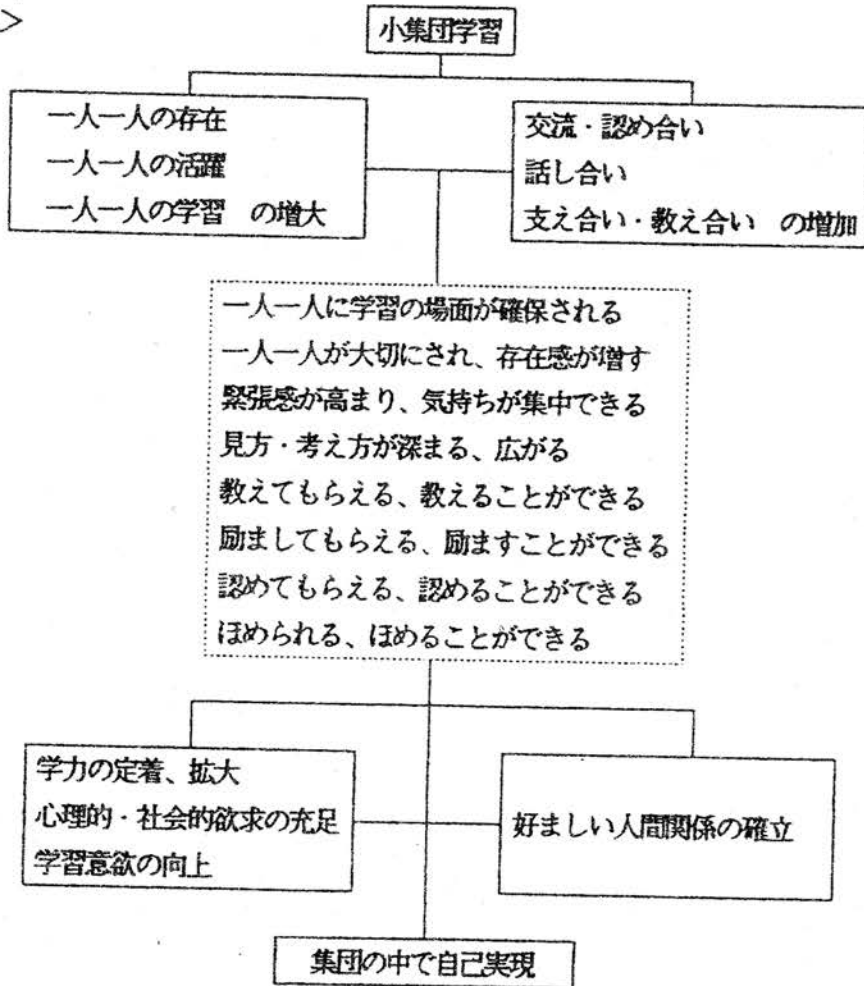 >
小集団学習
一人一人の存在
一人一人の活躍
一人一人の学習 の増大
交流・認め合い
話し合い
支え合い・教え合い の増加
一人一人に学習の場面が確保される
一人一人が大切にされ、存在感が増す
緊張感が高まり、気持ちが集中できる
見方・考え方が深まる、広がる
教えてもらえる、教えることができる
励ましてもらえる、励ますことができる
認めてもらえる、認めることができる
ほめられる、ほめることができる
学力の定着、拡大
心理的・社会的欲求の充足
学習意欲の向上
好ましい人間関係の確立
集団の中で自己実現